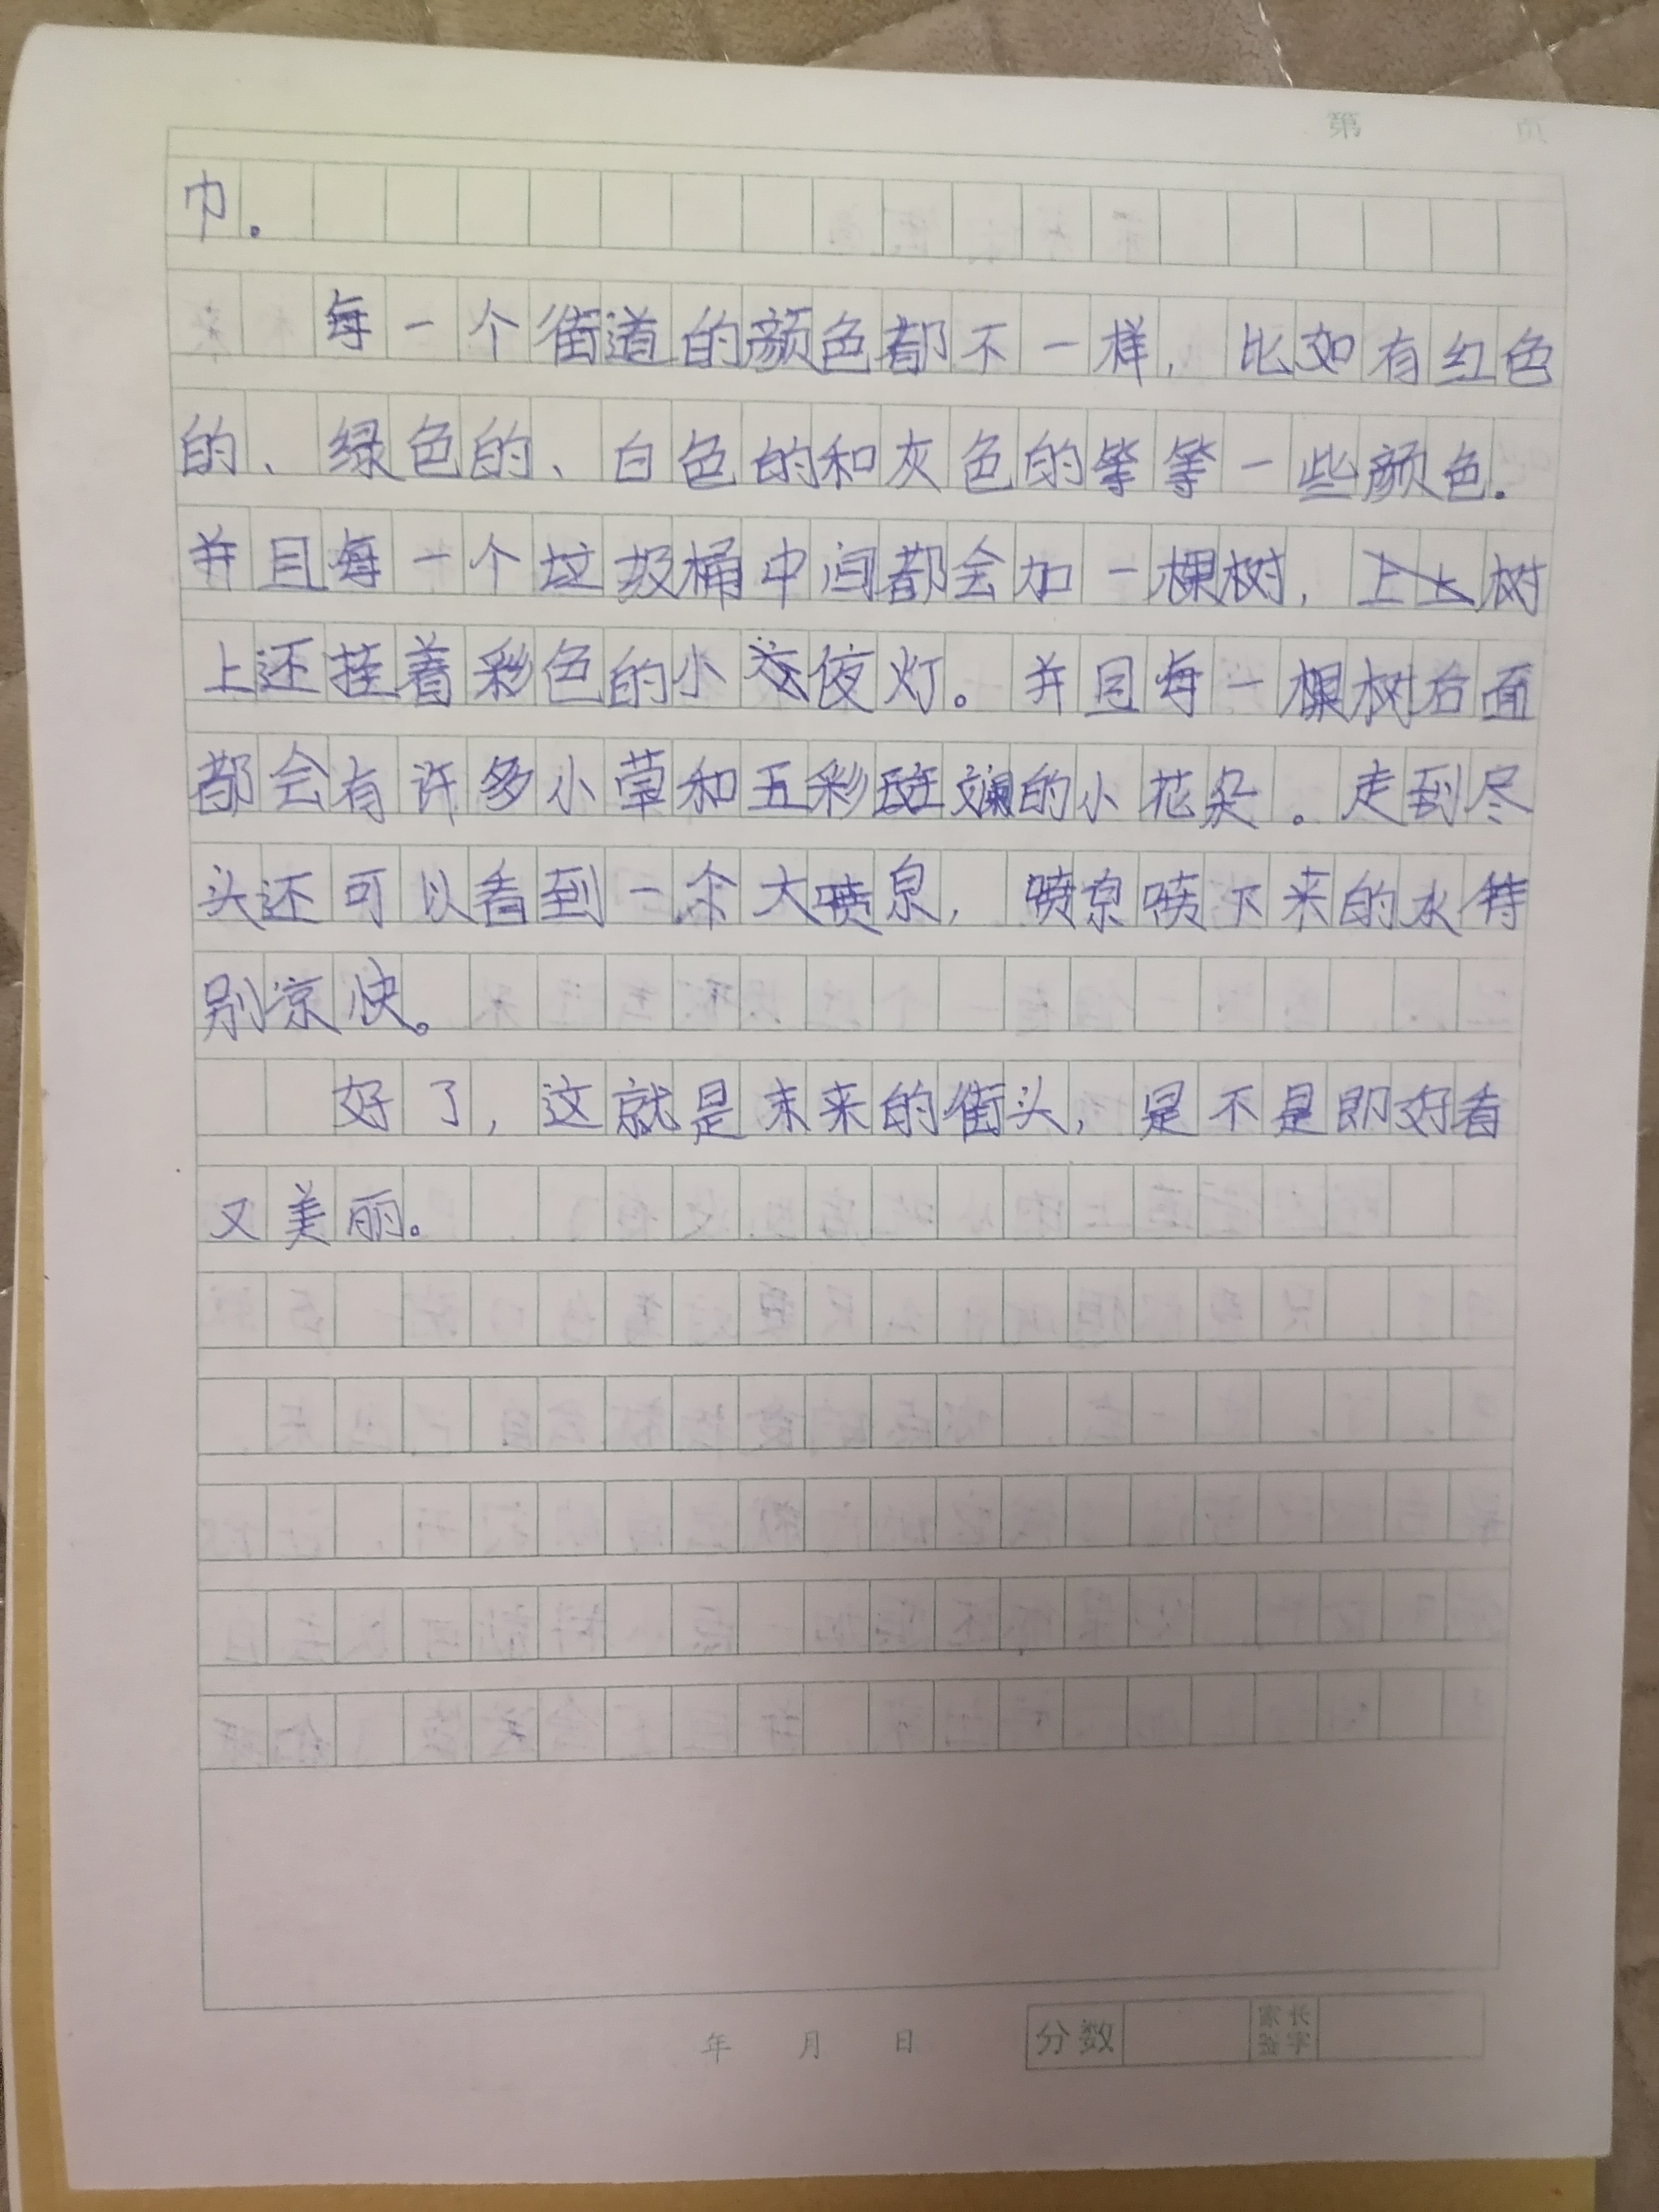 第 页
巾。
每一个街道的颜色都不一样，比如有红色
的、绿色的、白色的和灰色的等等一些颜色.
并且每一个垃圾桶中间都会加一棵树，树
上还挂着彩色的小夜灯。并且每一棵树后面
都会有许多小草和五彩斑斓的小花朵。走到尽
头还可以看到一个大喷泉，喷泉喷下来的水特
别凉快。
好了，这就是未来的街头，是不是即好看
又美丽。
年 月 日 分数 家长签字